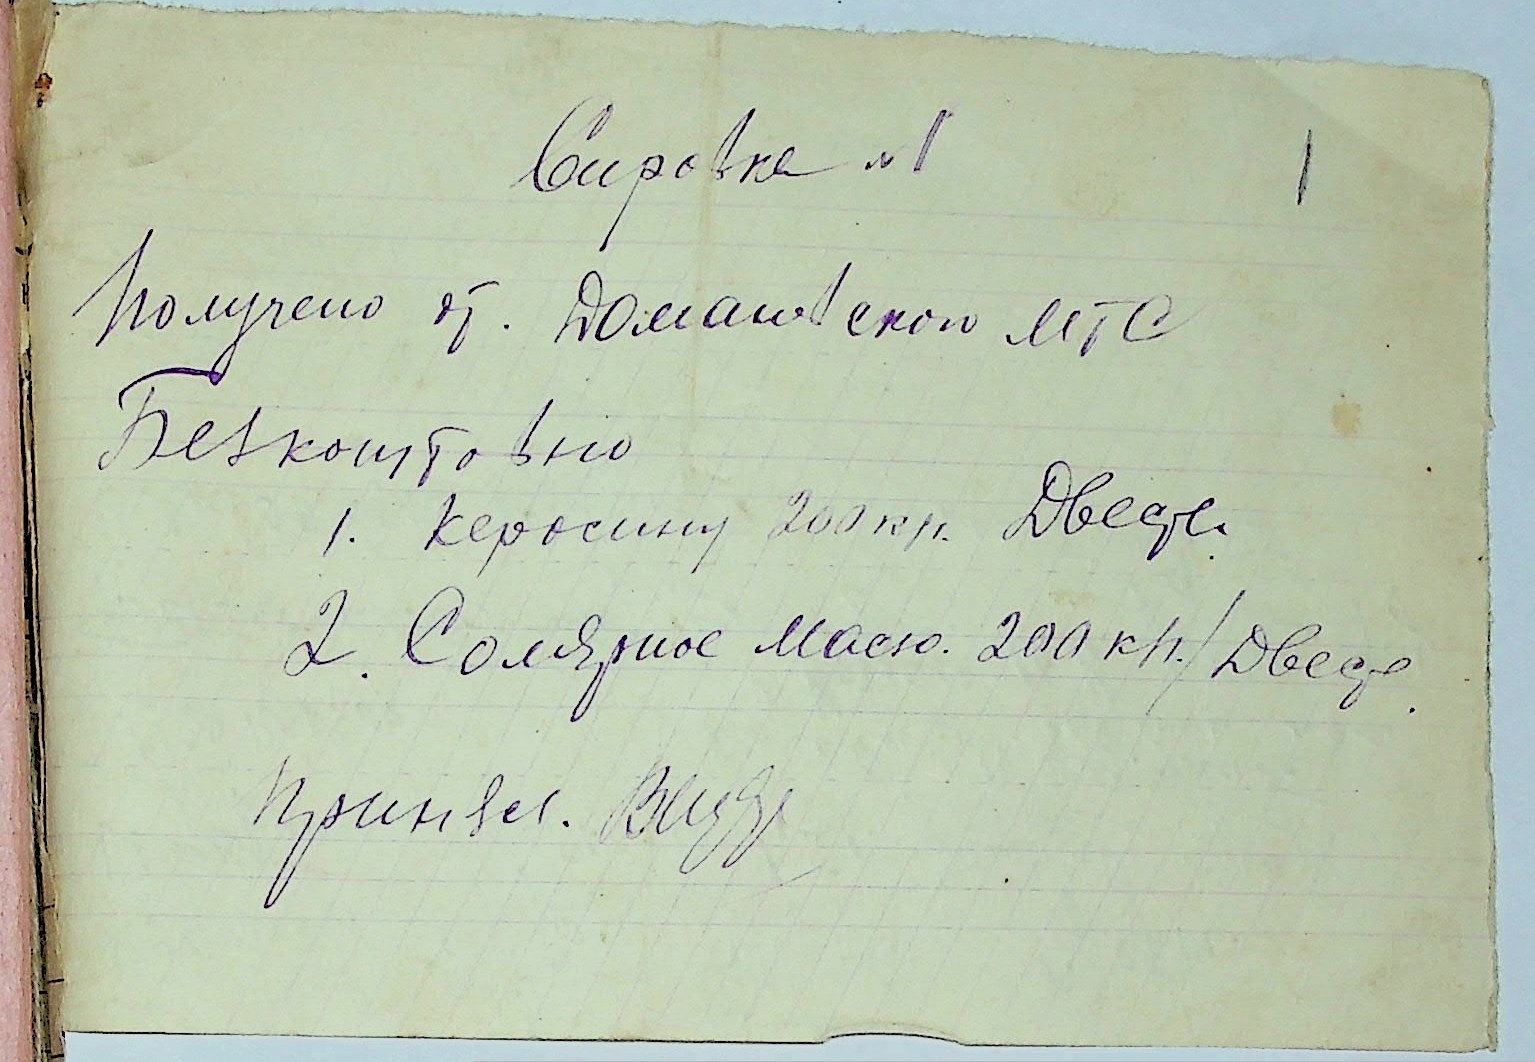 Справка №1
1
Получено от. Доманевской МТС
Безкоштовно
1. Керосину 200 кг. Двести.
2. Солярное масло. 200 кг. / Двести.
Принял.